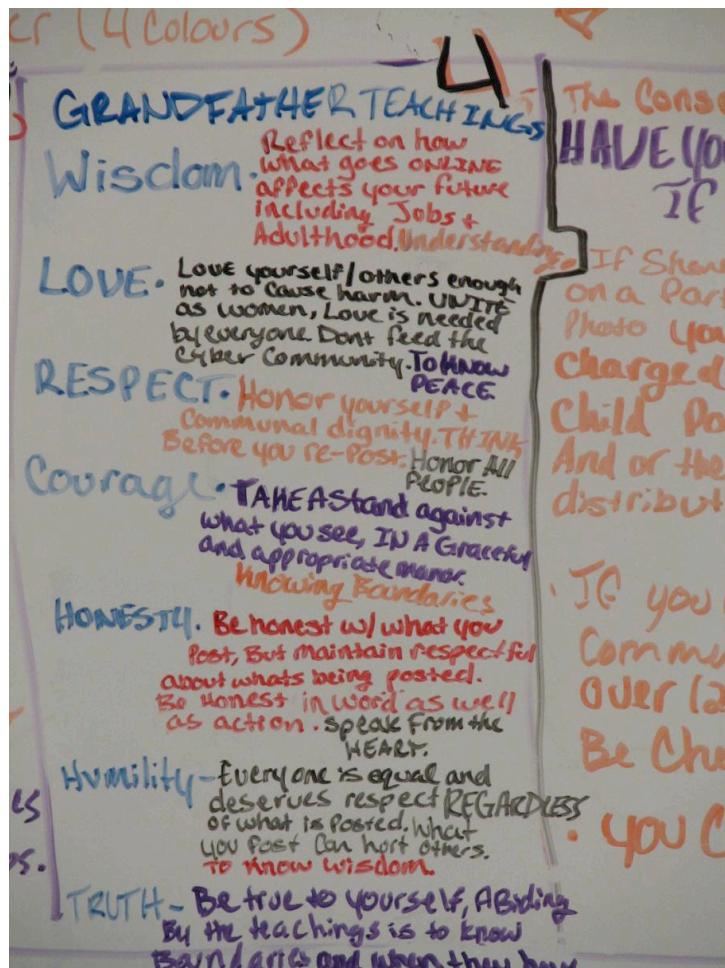 er (4 Colours)
4
GRANDFATHER TEACHINGS
Wisdom. Reflect on how
what goes ONLINE
affects your future
including Jobs +
Adulthood. Understanding.
LOVE. Love yourself/others enough
not to cause harm. UNITE
as women, Love is needed
by everyone. Dont feed the
Cyber Community. To KNOW
PEACE.
RESPECT. Honor yourself +
Communal dignity. THINK
Before you re-Post. Honor All
PEOPLE.
Courage. TAKE A Stand against
what you see, IN A Graceful
and appropriate manor.
Knowing Boundaries
HONESTY. Be honest w/ what you
Post, But maintain respectful
about whats being posted.
Be Honest in word as well
as action. speak From the
HEART.
Humility - Everyone is equal and
deserves respect REGARDLESS
of what is Posted. What
you Post Can hurt others.
to know wisdom.
TRUTH - Be true to yourself, ABiding
By the teachings is to know
Boundaries and when they have
The Cons
HAVE YO
IF
If Shar
on a Par
Photo you
charged
Child Po
And or the
distribut
. If you
Commu
over 12
Be Cha
. YOU C
es
s.